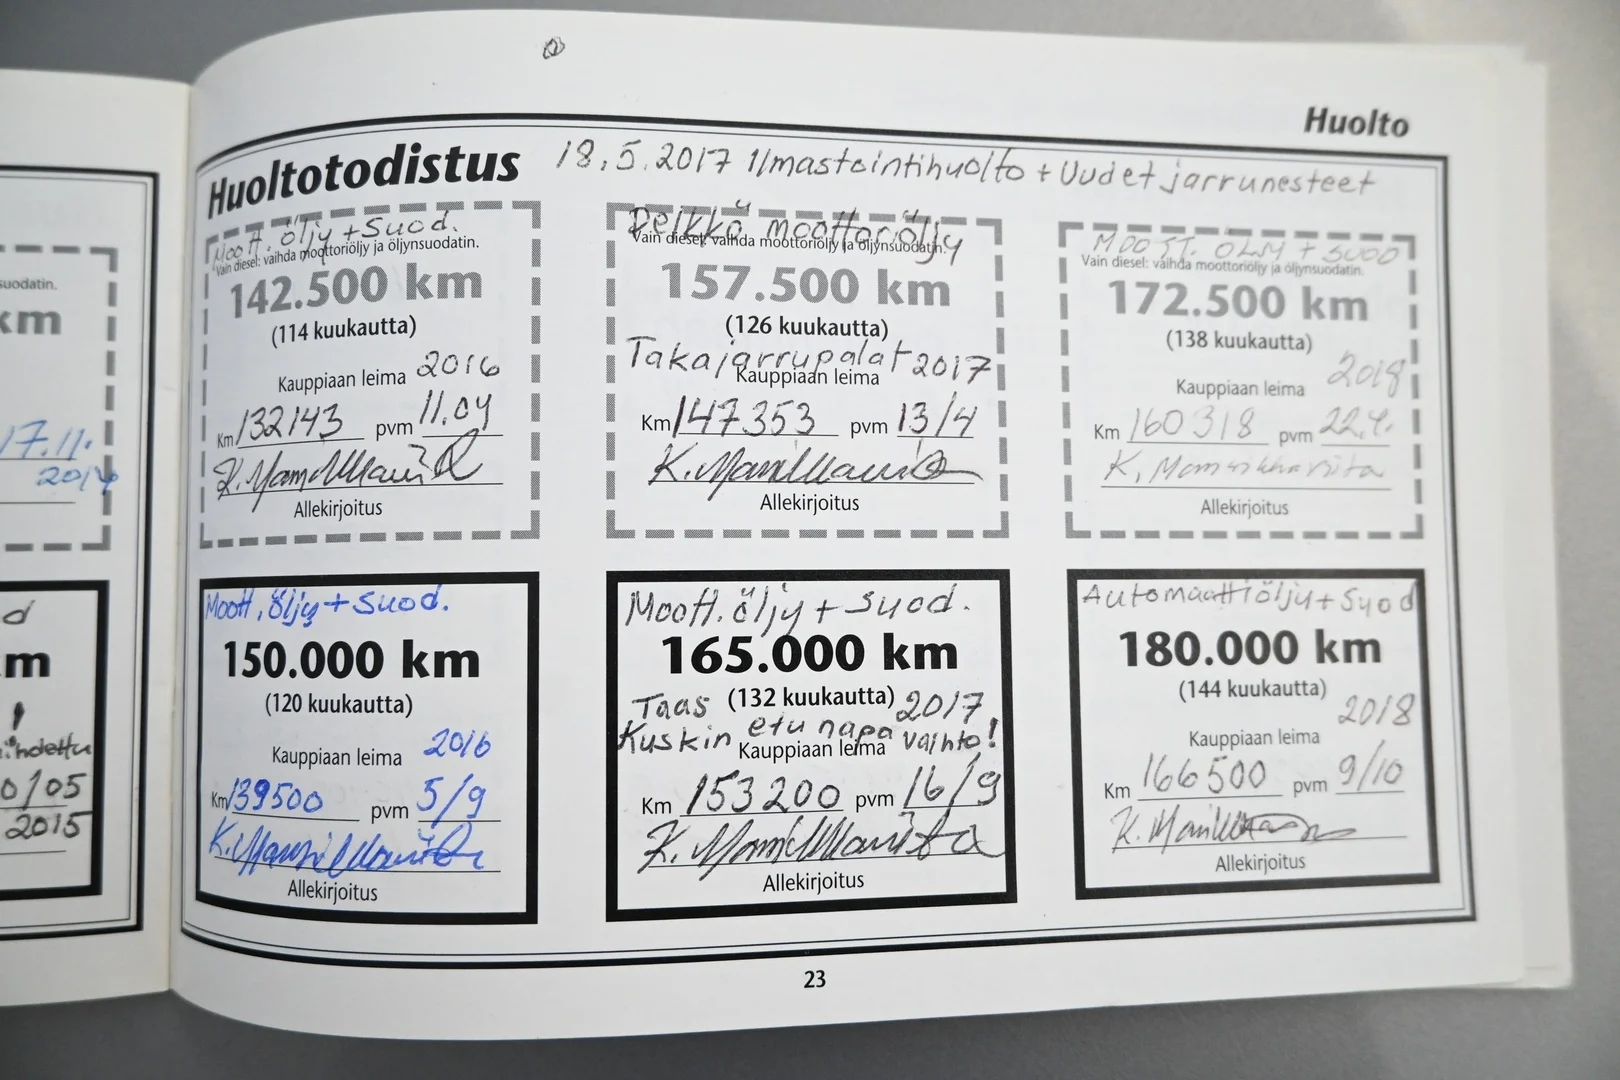 suodatin.
km
17.11.
2014
d
m
0/05
2015
Huolto
Huoltotodistus 18.5.2017 Ilmastointihuolto + Uudet jarrunesteet
Moott. öljy + Suod.
Vain diesel: vaihda moottoriöljy ja öljynsuodatin.
142.500 km
(114 kuukautta)
2016
Kauppiaan leima
Km 132143 pvm 11.04
Allekirjoitus
Pelkkä moottoriöljy
Vain diesel: vaihda moottoriöljy ja öljynsuodatin.
157.500 km
(126 kuukautta)
Takajarrupalat 2017
Kauppiaan leima
Km 147353 pvm 13/4
Allekirjoitus
MOOTT. ÖLJY + SUOD
Vain diesel: vaihda moottoriöljy ja öljynsuodatin.
172.500 km
(138 kuukautta)
2018
Kauppiaan leima
Km 160318 pvm 22.4.
Allekirjoitus
Moott. öljy + Suod.
150.000 km
(120 kuukautta)
2016
Kauppiaan leima
Km 139500 pvm 5/9
Allekirjoitus
Moott. öljy + Suod.
165.000 km
Taas (132 kuukautta) 2017
Kuskin etu napa vaihto!
Kauppiaan leima
Km 153200 pvm 16/9
Allekirjoitus
Automaattiöljy + Suod
180.000 km
(144 kuukautta)
2018
Kauppiaan leima
Km 166500 pvm 9/10
Allekirjoitus
23